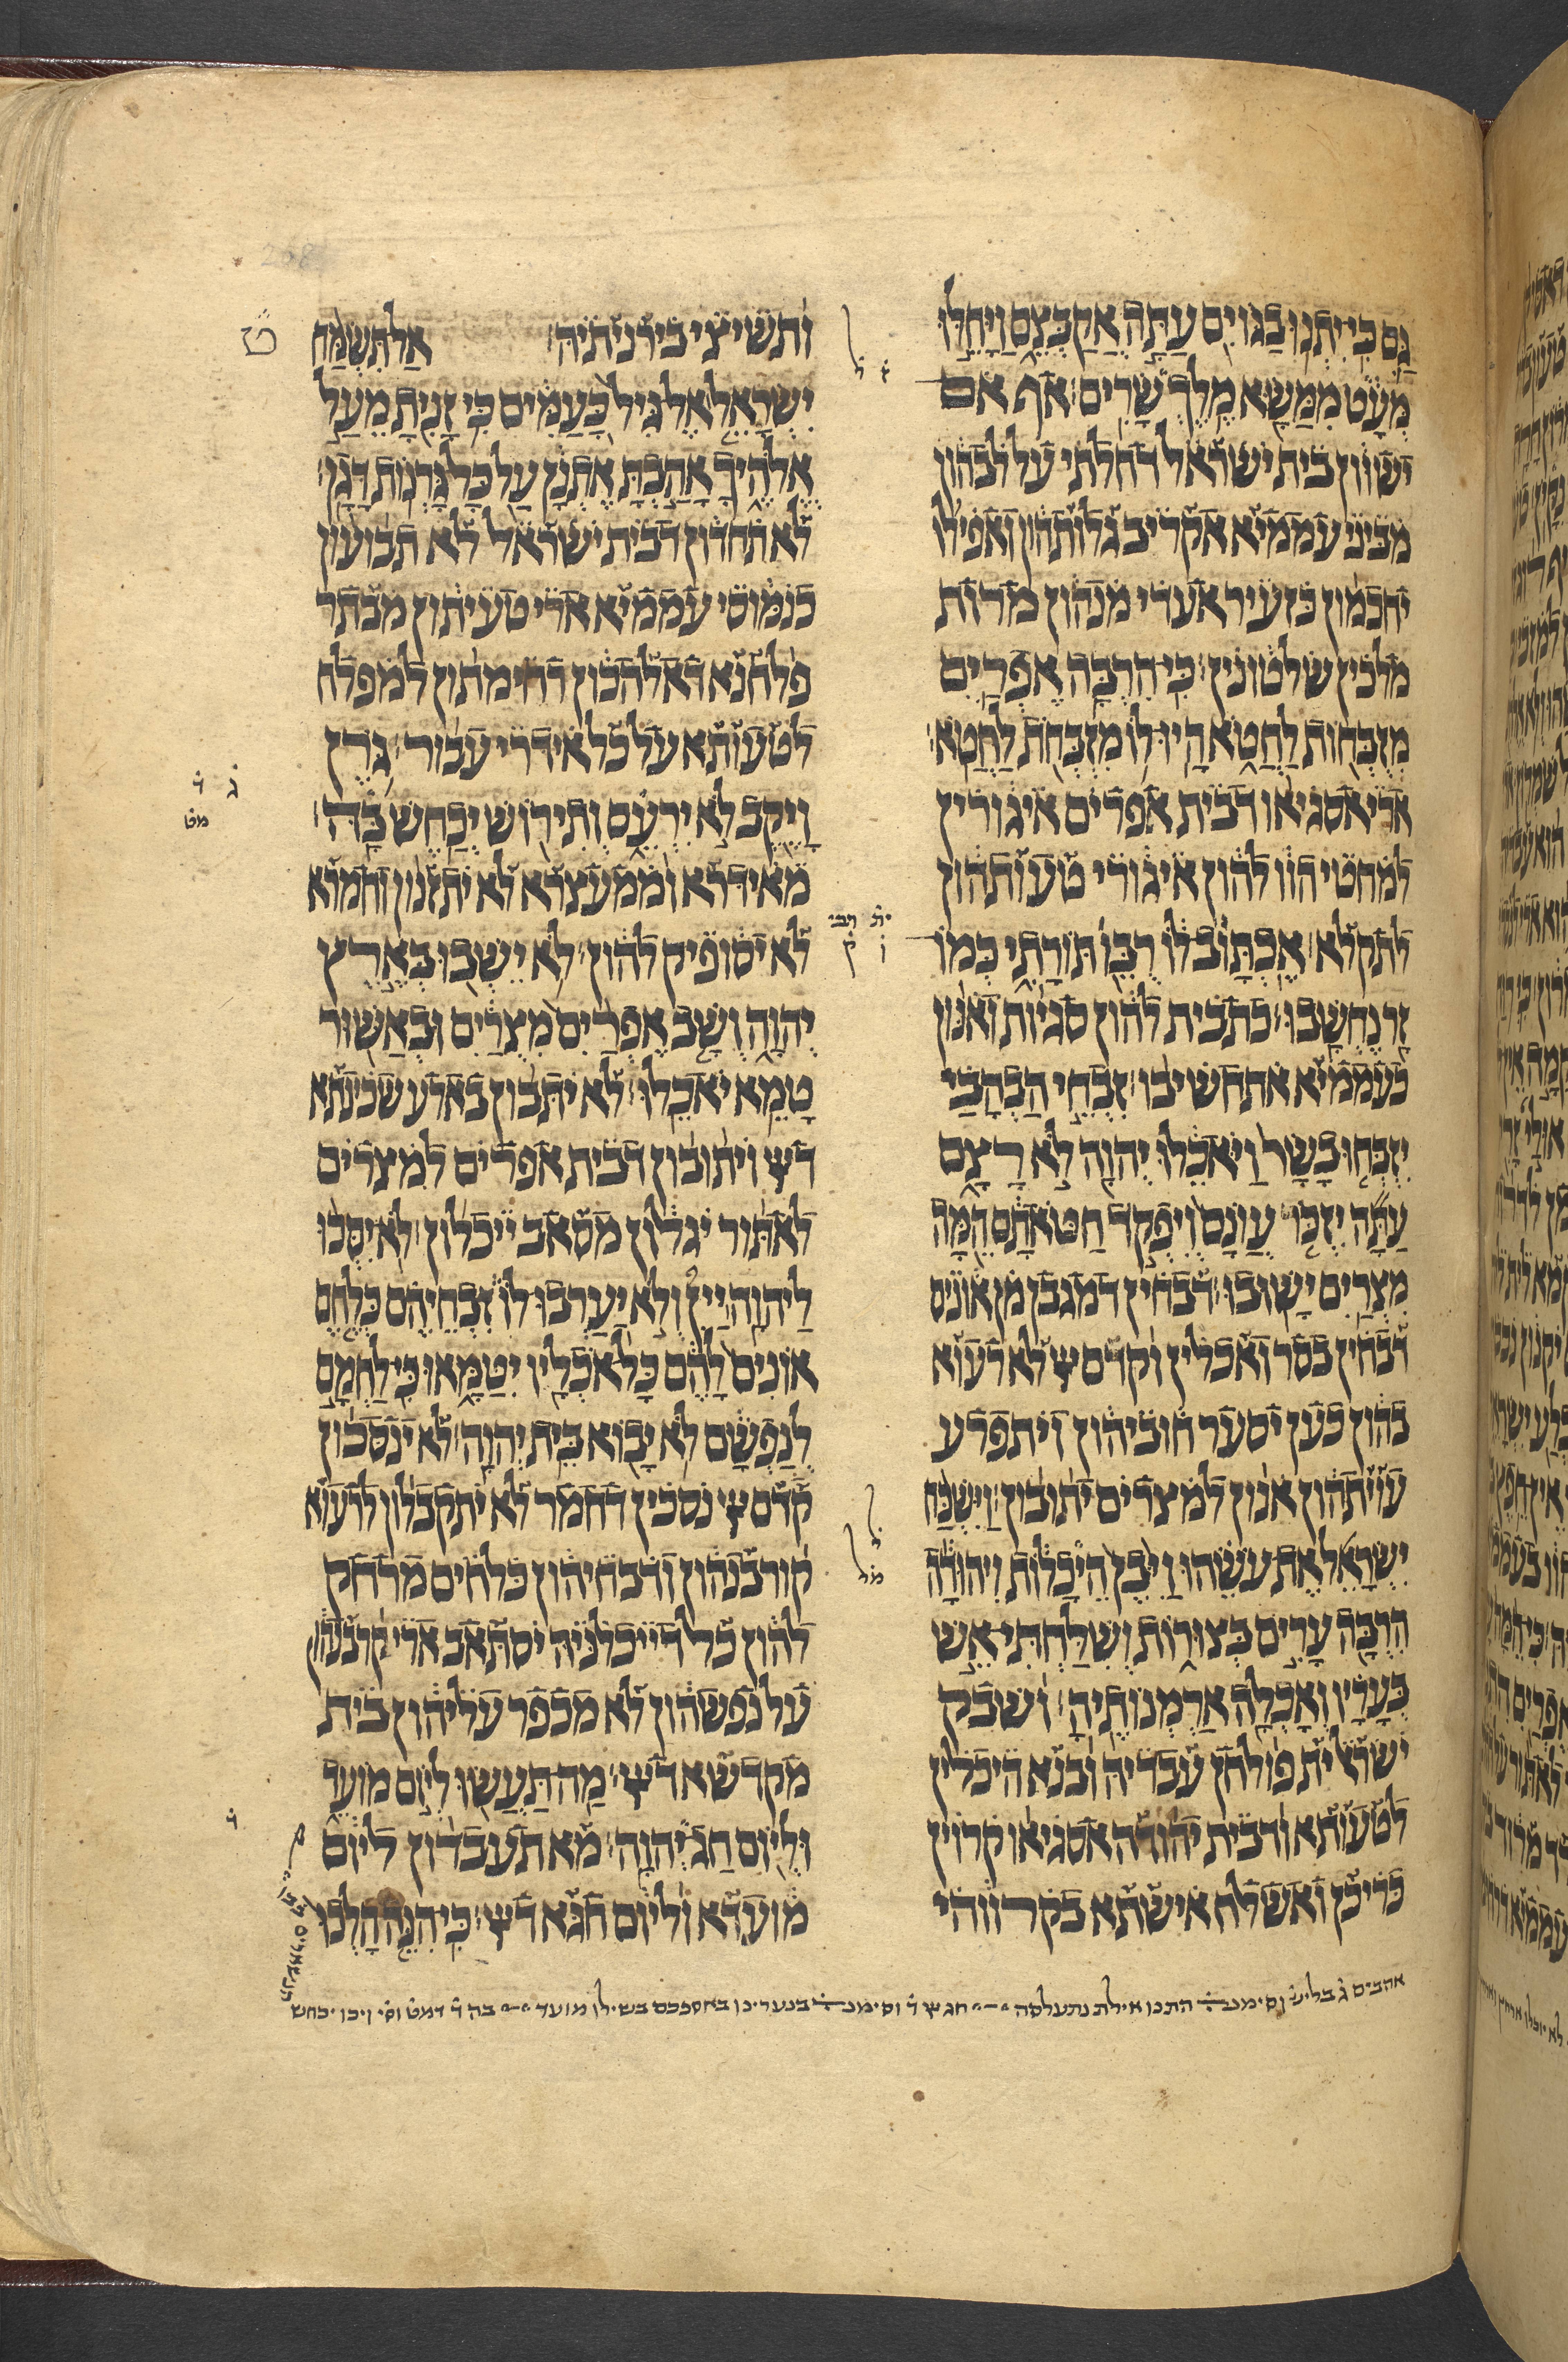 גַּם כִּי יִתְנוּ בַגּוֹיִם עַתָּה אֲקַבְּצֵם וַיָּחֵלּוּ
מְּעָט מִמַּשָּׂא מֶלֶךְ שָׂרִים׃ אף אם
ישוון בית ישראל דחלתי על לבהון
מביני עממיא אקריב גלותהון ואפילו
יחכמון כזעיר אעדי מנהון מרות
מלכין שלטונין׃ כִּי הִרְבָּה אֶפְרַיִם
מִזְבְּחוֹת לַחֲטֹא הָיוּ לוֹ מִזְבְּחֹת לַחֲטֹא׃
ארי אסגיאו דבית אפרים איגורין
למחטי הוו להון איגורי טעותהון
לתקלא׃ אֶכְתָּוב לוֹ רֻבֵּו תּוֹרָתִי כְּמוֹ
זָר נֶחְשָׁבוּ׃ כתבית להון סגיות ואנון
כעממיא אתחשיבו׃ זִבְחֵי הַבְהָבַי
יִזְבְּחוּ בָשָׂר וַיֹּאכֵלוּ יְהוָה לֹא רָצָם
עַתָּה יִזְכֹּר עֲוֹנָם וְיִפְקֹד חַטֹּאתָם הֵמָּה
מִצְרַיִם יָשׁוּבוּ׃ דבחין דמגבן מן אוניס
דבחין בסר ואכלין וקדם יי לא רעוא
בהון כען יסער חוביהון ויתפרע
עויתהון אנון למצרים יתובון׃ וַיִּשְׁכַּח
יִשְׂרָאֵל אֶת עֹשֵׂהוּ וַיִּבֶן הֵיכָלוֹת וִיהוּדָה
הִרְבָּה עָרִים בְּצוּרוֹת וְשִׁלַּחְתִּי אֵשׁ
בְּעָרָיו וְאָכְלָה אַרְמְנוֹתֶיהָ׃ ושבק
ישראל ית פולחן עבדיה ובנא היכלין
לטעותא ודבית יהודה אסגיאו קרוין
כריכן ואשלח אישתא בקרווהי
ותשיצי בירניתיה׃ אַל תִּשְׂמַח
יִשְׂרָאֵל אֶל גִּיל כָּעַמִּים כִּי זָנִיתָ מֵעַל
אֱלֹהֶיךָ אָהַבְתָּ אֶתְנָן עַל כָּל גָּרְנוֹת דָּגָן׃
לא תחדון דבית ישראל לא תבועון
כנמוסי עממיא ארי טעיתון מבתר
פלחנא דאלהכון דחימתון למפלח
לטעותא על כל אידרי עבור׃ גֹּרֶן
וָיֶקֶב לֹא יִרְעֵם וְתִירוֹשׁ יְכַחֶשׁ בָּהּ׃
מאידרא וממעצרא לא יתזנון וחמרא
לא יסופיק להון׃ לֹא יֵשְׁבוּ בְּאֶרֶץ
יְהוָה וְשָׁב אֶפְרַיִם מִצְרַיִם וּבְאַשּׁוּר
טָמֵא יֹאכֵלוּ׃ לא יתבון בארע שכינתא
דיי ויתובון דבית אפרים למצרים
לאתור יגלון מסאב ייכלון׃ לֹא יִסְּכוּ
לַיהוָה יַיִן וְלֹא יַעַרְבוּ לוֹ זִבְחֵיהֶם כְּלֶחֶם
אוֹנִים לָהֶם כָּל אֹכְלָיו יִטַּמָּאוּ כִּי לַחְמָם
לְנַפְשָׁם לֹא יָבוֹא בֵּית יְהוָה׃ לא ינסכון
קדם יי נסכין דחמר לא יתקבלון לרעוא
קורבנהון ודבחיהון כלחים מרחק
להון כל דייכלניה יסתאב ארי קרבנהון
על נפשהון לא מכפר עליהון בית
מקדשא דיי׃ מַה תַּעֲשׂוּ לְיוֹם מוֹעֵד
וּלְיוֹם חַג יְהוָה׃ מא תעבדון ליום
מועדא וליום חגא דיי׃ כִּי הִנֵּה הָלְכוּ